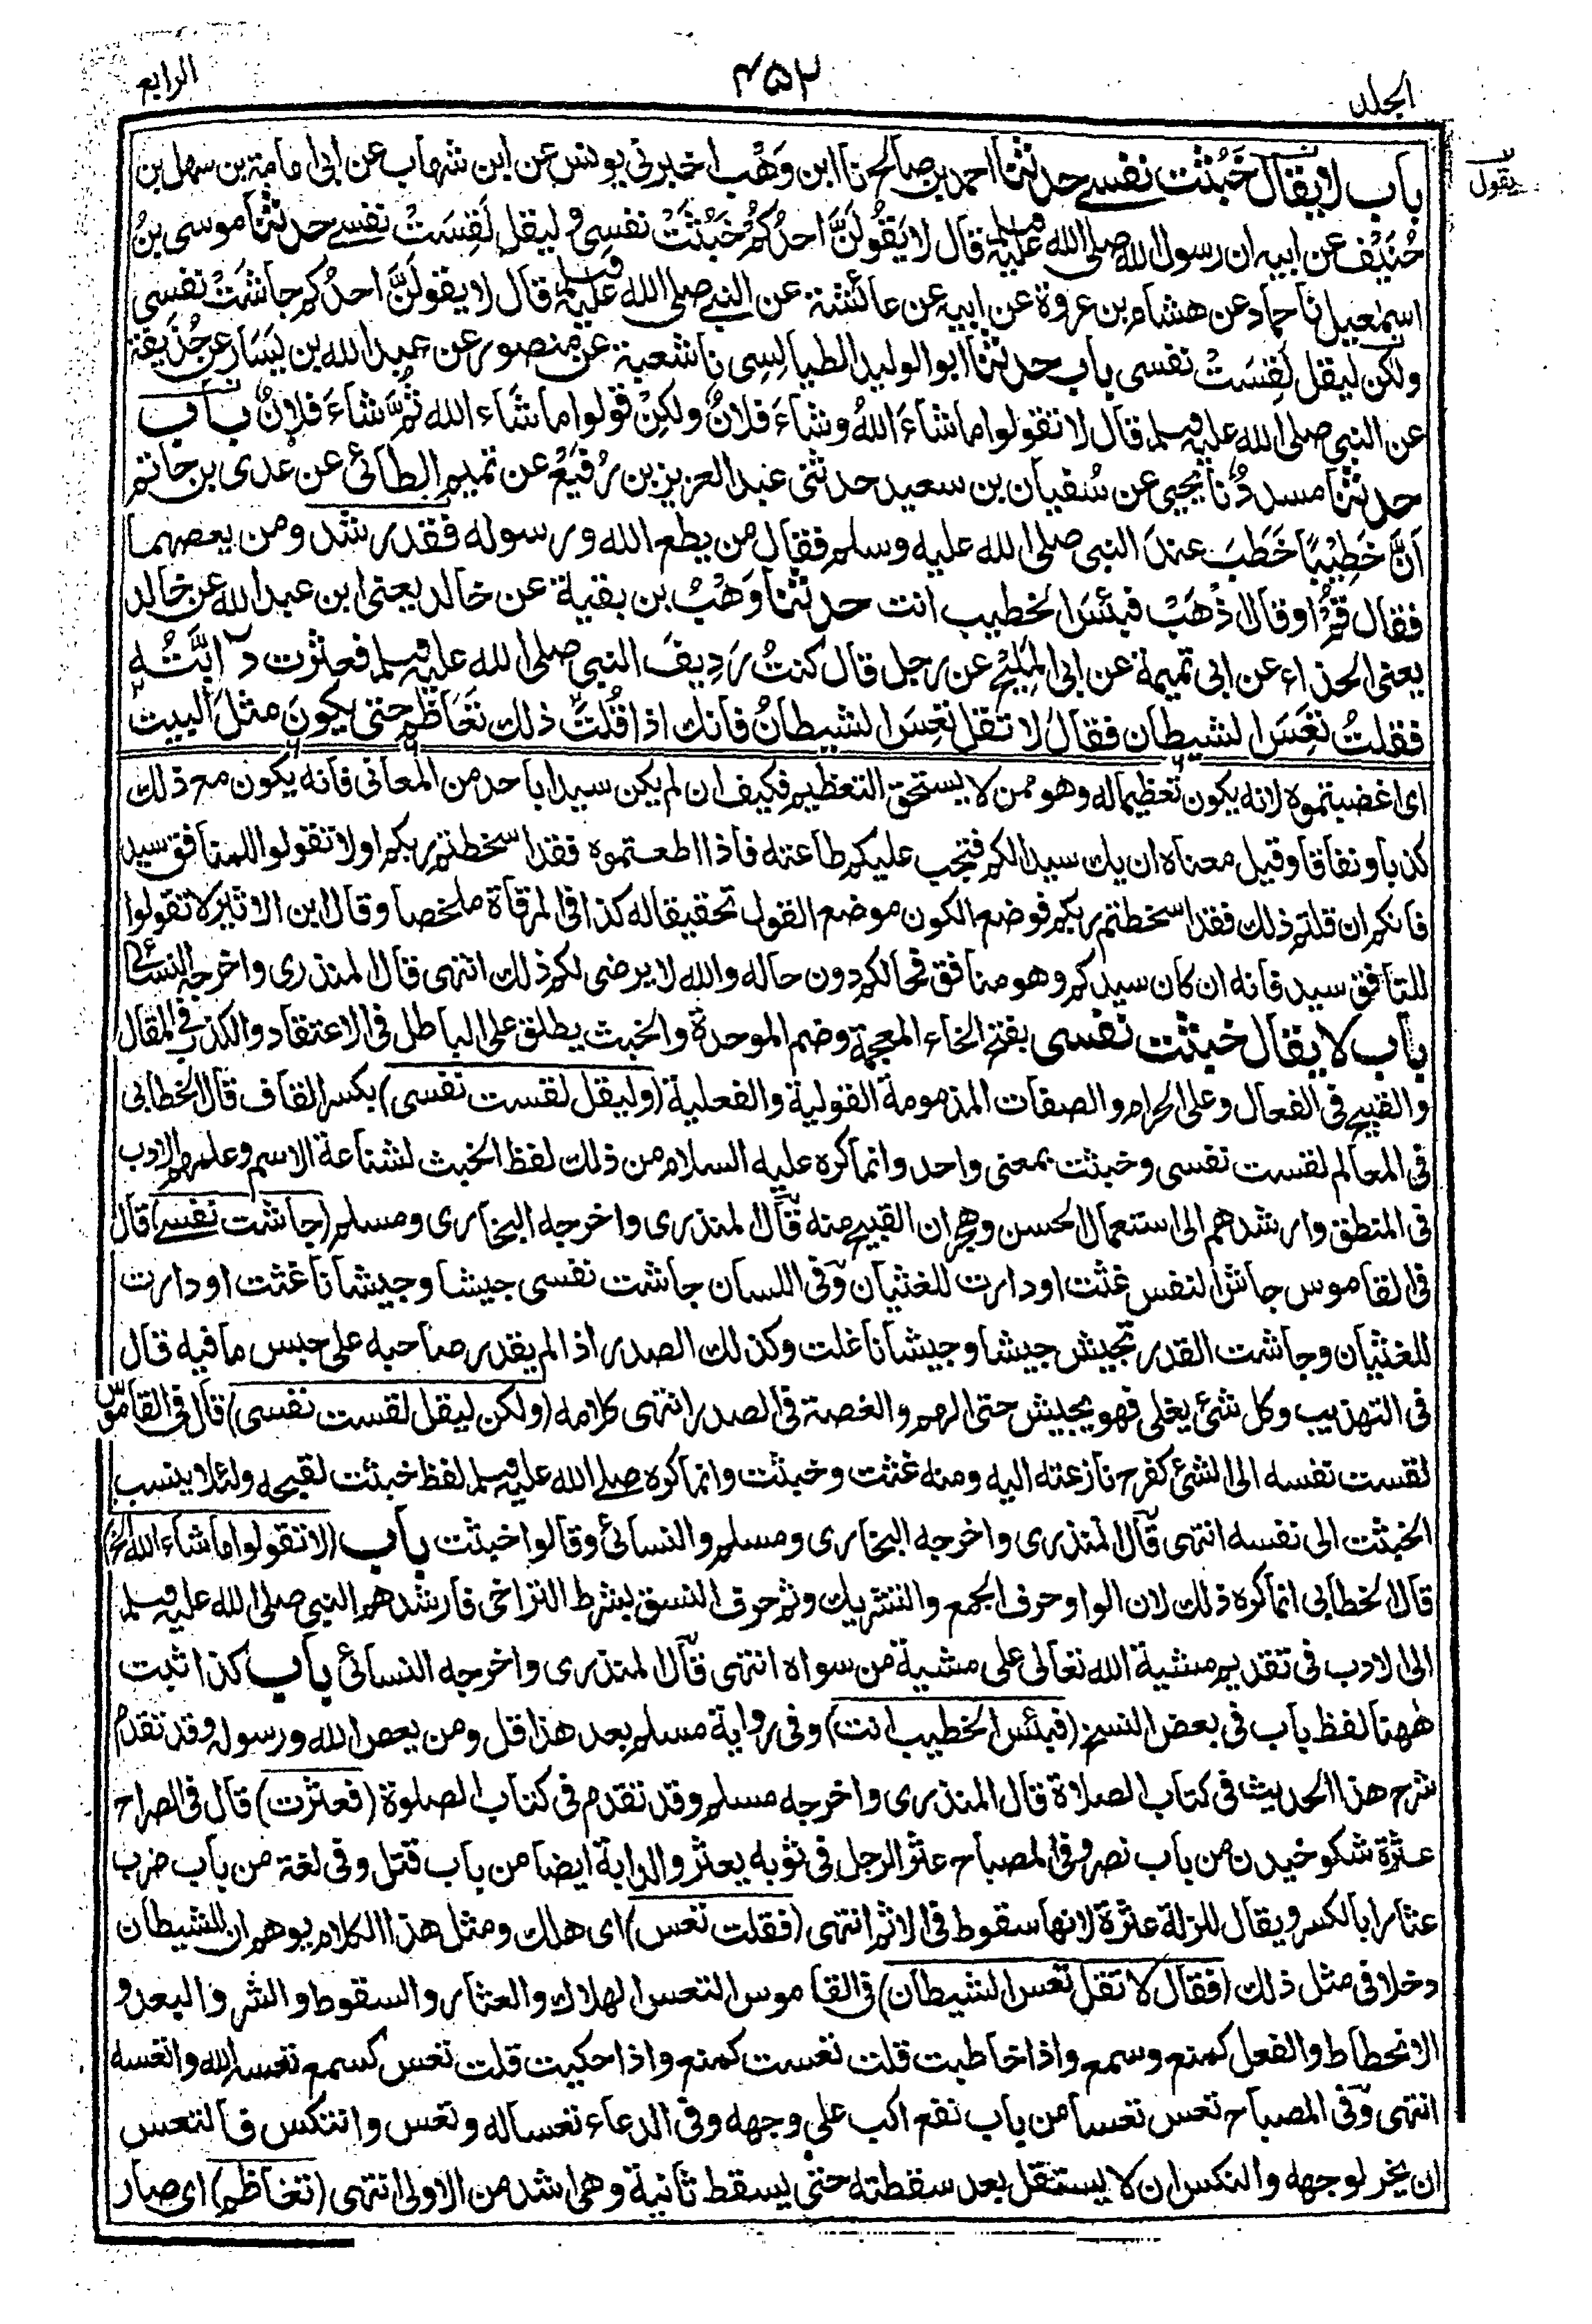 الرابع
۴۵۲
الجلد
يقول
باب لا يقال خَبُثت نفسي حدثنا احمد بن صالح نا ابن وَهْب اخبرني يونس عن ابن شهاب عن ابى امامة بن سهل بن
حُنَيْف عن ابيه ان رسول الله صلى الله عليه وسلم قال لا يَقُولَنَّ احدُكُم خَبُثَتْ نفسى وليقل لَقِسَتْ نفسي حدثنا موسى بنُ
اسمٰعيل نا حماد عن هشام بن عروة عن ابيه عن عائشة عن النبي صلى الله عليه وسلم قال لا يقولَنَّ احدُكم جاشَتْ نفسى
ولكن ليقل لَقِسَتْ نفسى باب حدثنا ابو الوليد الطيالِسِى نا شعبة عن منصور عن عبد الله بن يَسَار عن حُذَيفة
عن النبى صلى الله عليه وسلم قال لا تقولوا ما شاءَ اللهُ وشاءَ فلانٌ ولكِنْ قولوا ما شاء الله ثُمَّ شاءَ فلانٌ باب
حدثنا مسددٌ نا يحيى عن سُفيان بن سعيد حدثنى عبد العزيز بن رُفَيْعٍ عن تميم الطائى عن عدى بن حاتم
اَنَّ خَطِيْبًا خَطَبَ عندَ النبى صلى الله عليه وسلم فقال من يطع الله ورسوله فقد رشد ومن يعصهما
فقال قُمْ اوقال اذْهَبْ فبئسَ الخطيب انت حدثنا وَهْبُ بن بقية عن خالد يعنى ابن عبد الله عن خالد
يعنى الحذاء عن ابى تميمة عن ابى المَلِيْح عن رجل قال كنتُ رَدِيفَ النبى صلى الله عليه وسلم فعثرت دابَّتُه
فقلتُ تَعِسَ الشيطان فقال لا تقل تَعِسَ الشيطانُ فانك اذا قُلتَ ذلك تَعَاظَم حتى يكونَ مثلَ البيت
اى اغضبتموه لانه يكون تعظيما له وهو ممن لا يستحق التعظيم فكيف ان لم يكن سيدا باحد من المعانى فانه يكون مع ذلك
كذبا ونفاقا وقيل معناه ان يك سيدا لكم فتجب عليكم طاعته فاذا اطعتموه فقد اسخطتم ربكم او لا تقولوا للمنافق سيد
فانكم ان قلتم ذلك فقد اسخطتم ربكم فوضع الكون موضع القول تحقيقا له كذا فى المرقاة ملخصا وقال ابن الاثير لا تقولوا
للمنافق سيد فانه ان كان سيدكم وهو منافق فحالكم دون حاله والله لا يرضى لكم ذلك انتهى قال المنذرى واخرجه النسائى
باب لا يقال خبثت نفسى بفتح الخاء المعجمة وضم الموحدة والخبث يطلق على الباطل فى الاعتقاد والكذب فى المقال
والقبيح فى الفعال وعلى الحرام والصفات المذمومة القولية والفعلية (وليقل لقست نفسى) بكسر القاف قال الخطابى
فى المعالم لقست نفسى وخبثت بمعنى واحد وانما كره عليه السلام من ذلك لفظ الخبث لشناعة الاسم وعلمهم الادب
فى المنطق وارشدهم الى استعمال الحسن وهجران القبيح منه قال المنذرى واخرجه البخارى ومسلم (جاشت نفسي) قال
فى القاموس جاش النفس غثت او دارت للغثيان وفى اللسان جاشت نفسى جيشا وجيشانا غثت او دارت
للغثيان وجاشت القدر تجيش جيشا وجيشانا غلت وكذلك الصدر اذا لم يقدر صاحبه على حبس ما فيه قال
فى التهذيب وكل شئ يغلى فهو يجيش حتى الهم والغصة فى الصدر انتهى كلامه (ولكن ليقل لقست نفسى) قال فى القاموس
لقست نفسه الى الشئ كفرح نازعته اليه ومنه غثت وخبثت وانما كره صلى الله عليه وسلم لفظ خبثت لقبحه ولئلا ينسب
الخبث الى نفسه انتهى قال المنذرى واخرجه البخارى ومسلم والنسائى وقالوا خبثت باب (لا تقولوا ما شاء الله الخ)
قال الخطابى انما كره ذلك لان الواو حرف الجمع والتشريك وثم حرف النسق بشرط التراخى فارشدهم النبى صلى الله عليه وسلم
الى الادب فى تقديم مشية الله تعالى على مشية من سواه انتهى قال المنذرى واخرجه النسائى باب كذا ثبت
ههنا لفظ باب فى بعض النسخ (فبئس الخطيب انت) وفى رواية مسلم بعد هذا قل ومن يعص الله ورسوله وقد تقدم
شرح هذا الحديث فى كتاب الصلاة قال المنذرى واخرجه مسلم وقد تقدم فى كتاب الصلوة (فعثرت) قال فى الصراح
عثرة شكوخيدن من باب نصر وفى المصباح عثر الرجل فى ثوبه يعثر والدابة ايضا من باب قتل وفى لغة من باب ضرب
عثارا بالكسر ويقال للزلة عثرة لانها سقوط فى الاثم انتهى (فقلت تعس) اى هلك ومثل هذا الكلام يوهم ان للشيطان
دخلا فى مثل ذلك (فقال لا تقل تعس الشيطان) فى القاموس التعس الهلاك والعثار والسقوط والشر والبعد و
الانحطاط والفعل كمنع وسمع واذا خاطبت قلت تعست كمنع واذا حكيت قلت تعس كسمع تعسه الله واتعسه
انتهى وفى المصباح تعس تعسا من باب نفع اكب على وجهه وفى الدعاء تعسا له وتعس وانتكس فالتعس
ان يخر لوجهه والنكس ان لا يستقل بعد سقطته حتى يسقط ثانية وهى اشد من الاولى انتهى (تعاظم) اى صار